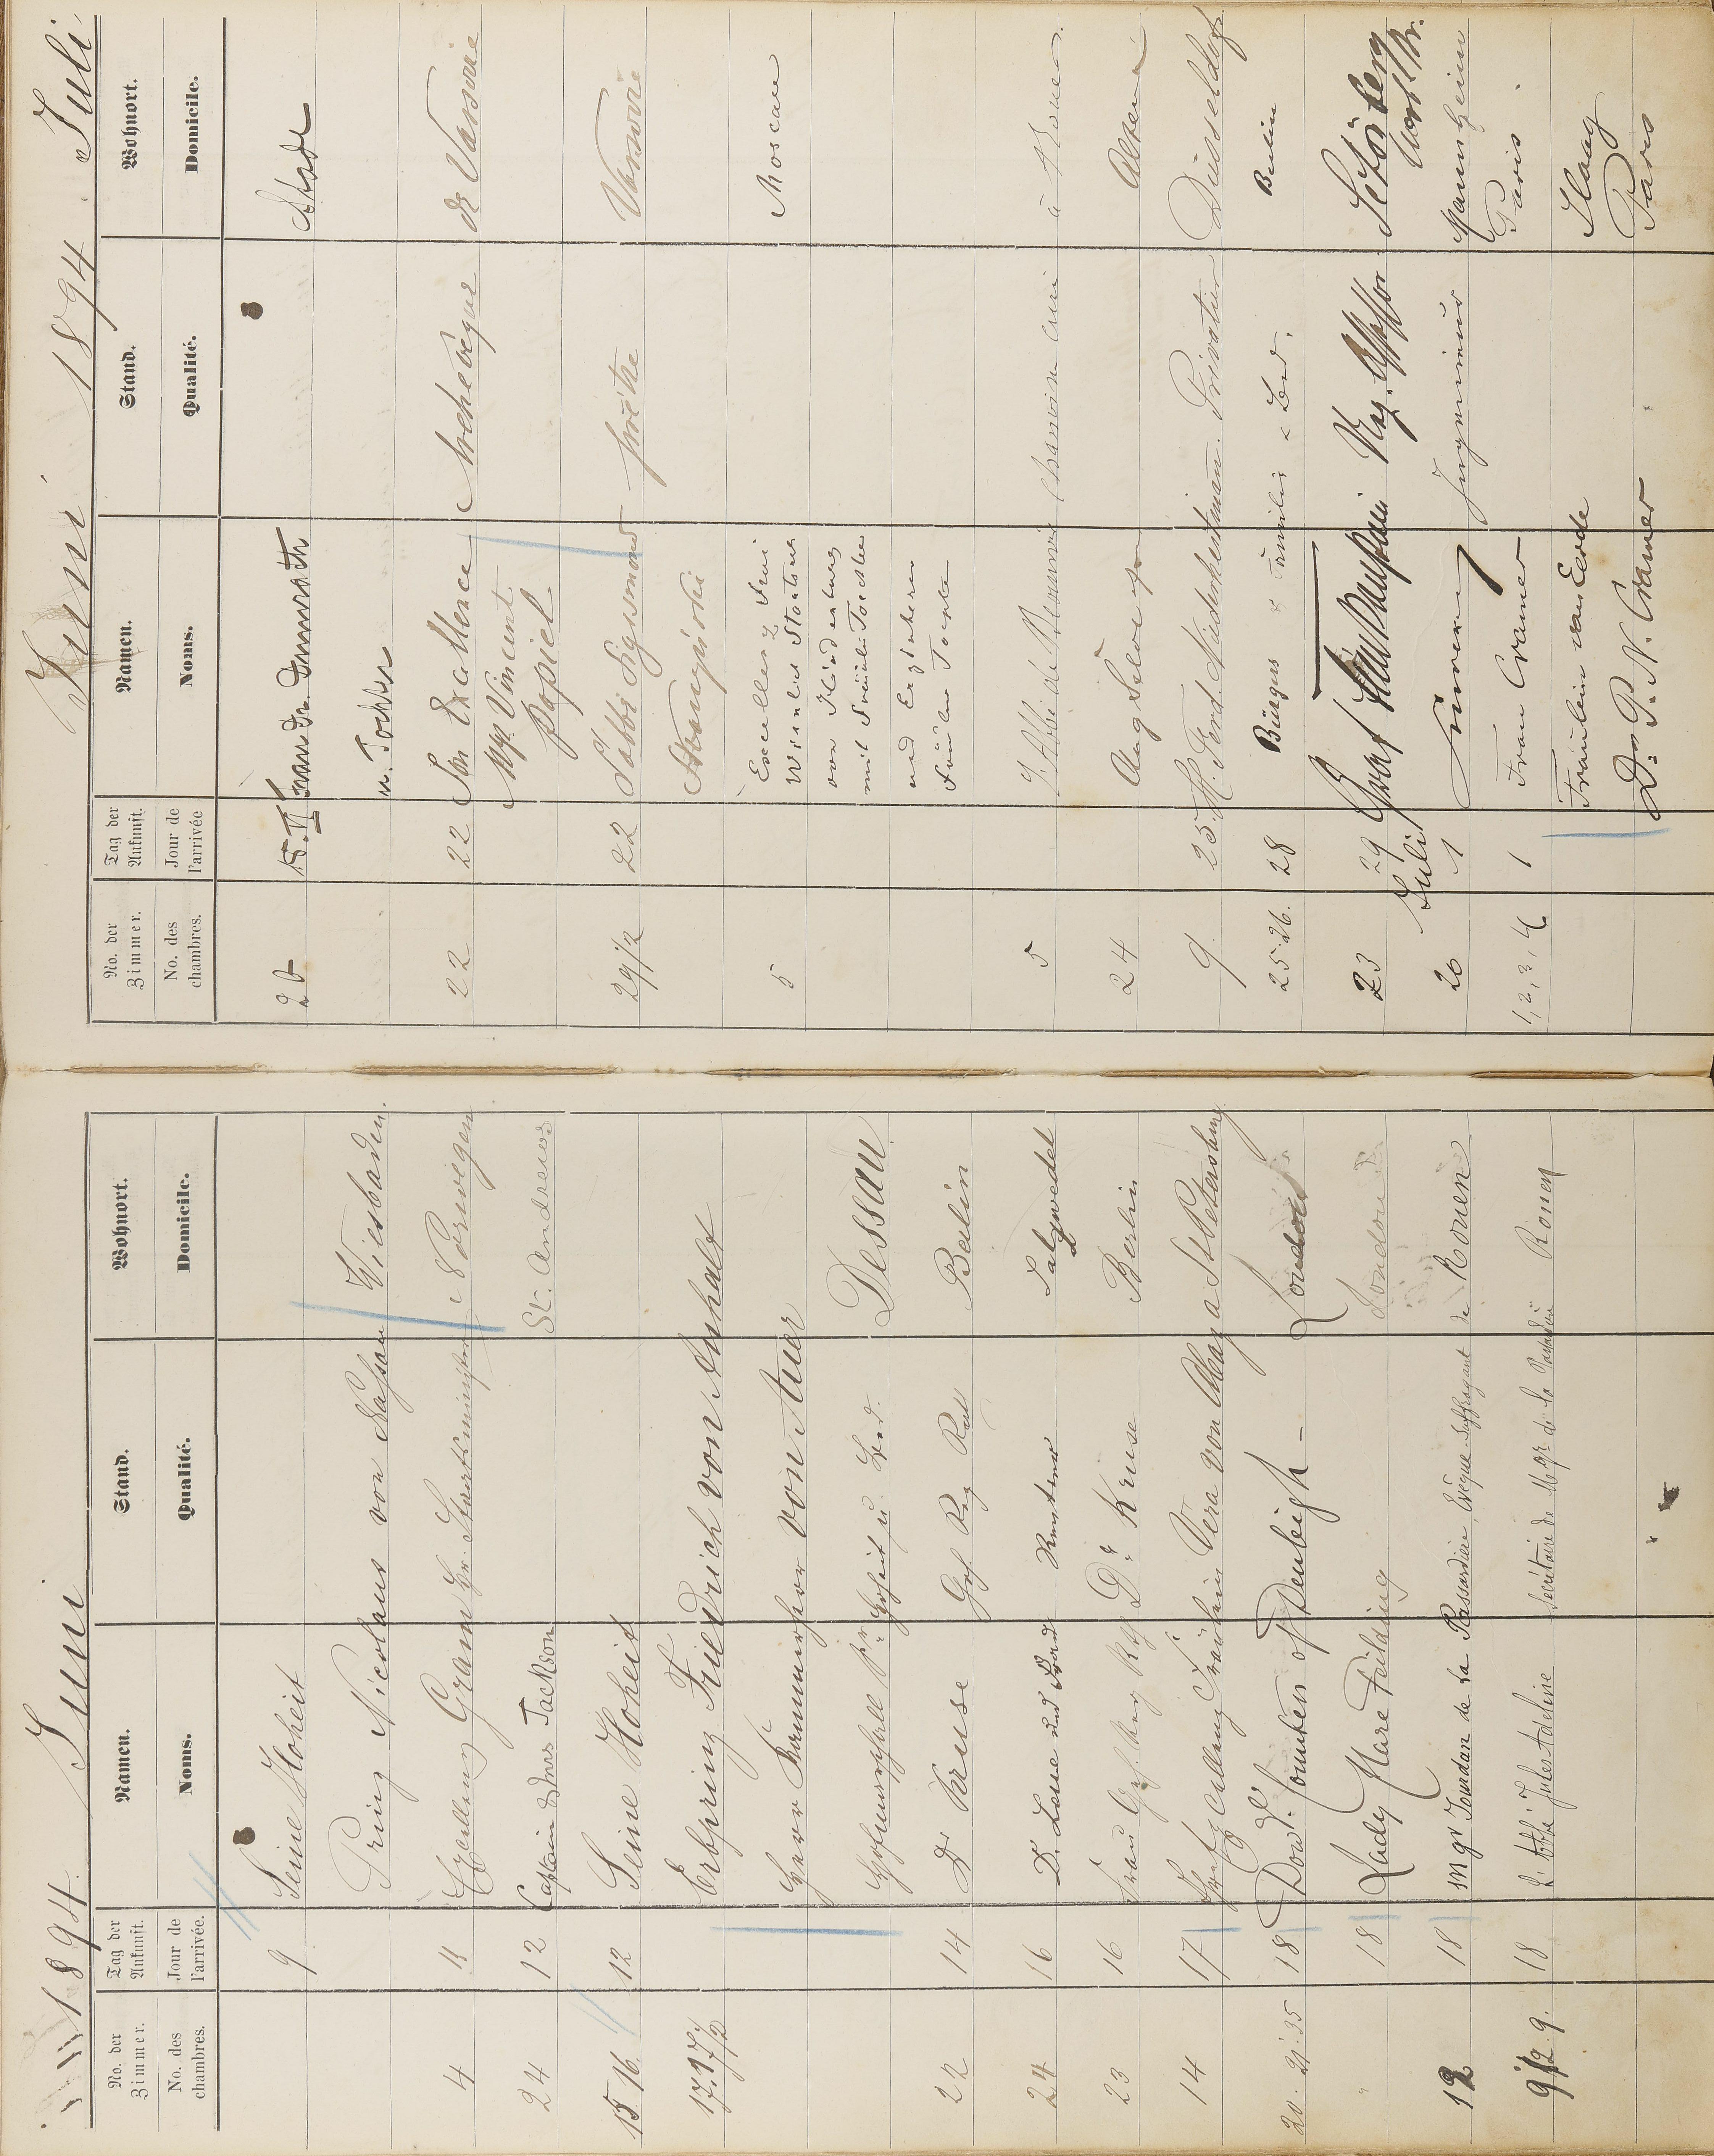 1894. Juni
No. der Zimmer. Tag der Ankunft. Namen. Stand. Wohnort.
No. des chambres. Jour de l'arrivée. Noms. Qualité. Domicile.
9 Seine Hoheit
Prinz Nicolaus von Nassau Wiesbaden.
4 11 Excellenz Gram Norwegen
24 12 Captain & Mrs Jackson St. Andrews
15. 16. 12 Seine Hoheit
17. 17 1/2 Erbprinz Friedrich von Anhalt
Herr Kammerherr von Auer
Hofmarschall Sr. Hoheit u. Bed. Dessau
22 14 Dr Kruse Geh Reg Rat Berlin
24 16 D. Lene und Frau Rentner Salzwedel
23 16 Frau Geh. Reg Rth Dr. Kruse Berlin
14 17 Ihre Excellenz Fräulein Vera von Abaza St Petersburg
20. 21. 35 18 Dowr. Countess of Denbigh - London
" 18 Lady Clare Feilding London
12 18 Mgr Jourdan de la Passardière, Evêque-Suffragant de Rouen
9 1/2. 9. 18 L'Abbé Jules Adeline Secrétaire de Mgr de la Passardière Rouen
Juni 1894. Juli
No. der Zimmer. Tag der Ankunft. Namen. Stand. Wohnort.
No. des chambres. Jour de l'arrivée Noms. Qualité. Domicile.
Frau Dr.
u. Tochter
22 22 Son Excellence Archevêque de Varsovie
Mgr. Vincent
Popiel
29 1/2 22 l'abbé Sygismond prêtre Varsovie
5 Excellenz Frau
Wirkl. Staatsrat
von
mit Fräulein Tochter
und Erzieherin
Fräulein
Moscau
5 l'Abbé de Chanoine
24 Aug
9. 25. H. Ferd. Niederheitmann. Privatier Düsseldorf
25. 26. 28 Bürges & Familie & Bed. Berlin
23 29 Graf Reg. Assessor
Juli
20 1 Ingenieur Mannheim
1, 2, 3, 4 1 Frau Cramer Paris.
Fräulein van Eerde Haag
Dr. P. N. Cramer Paris